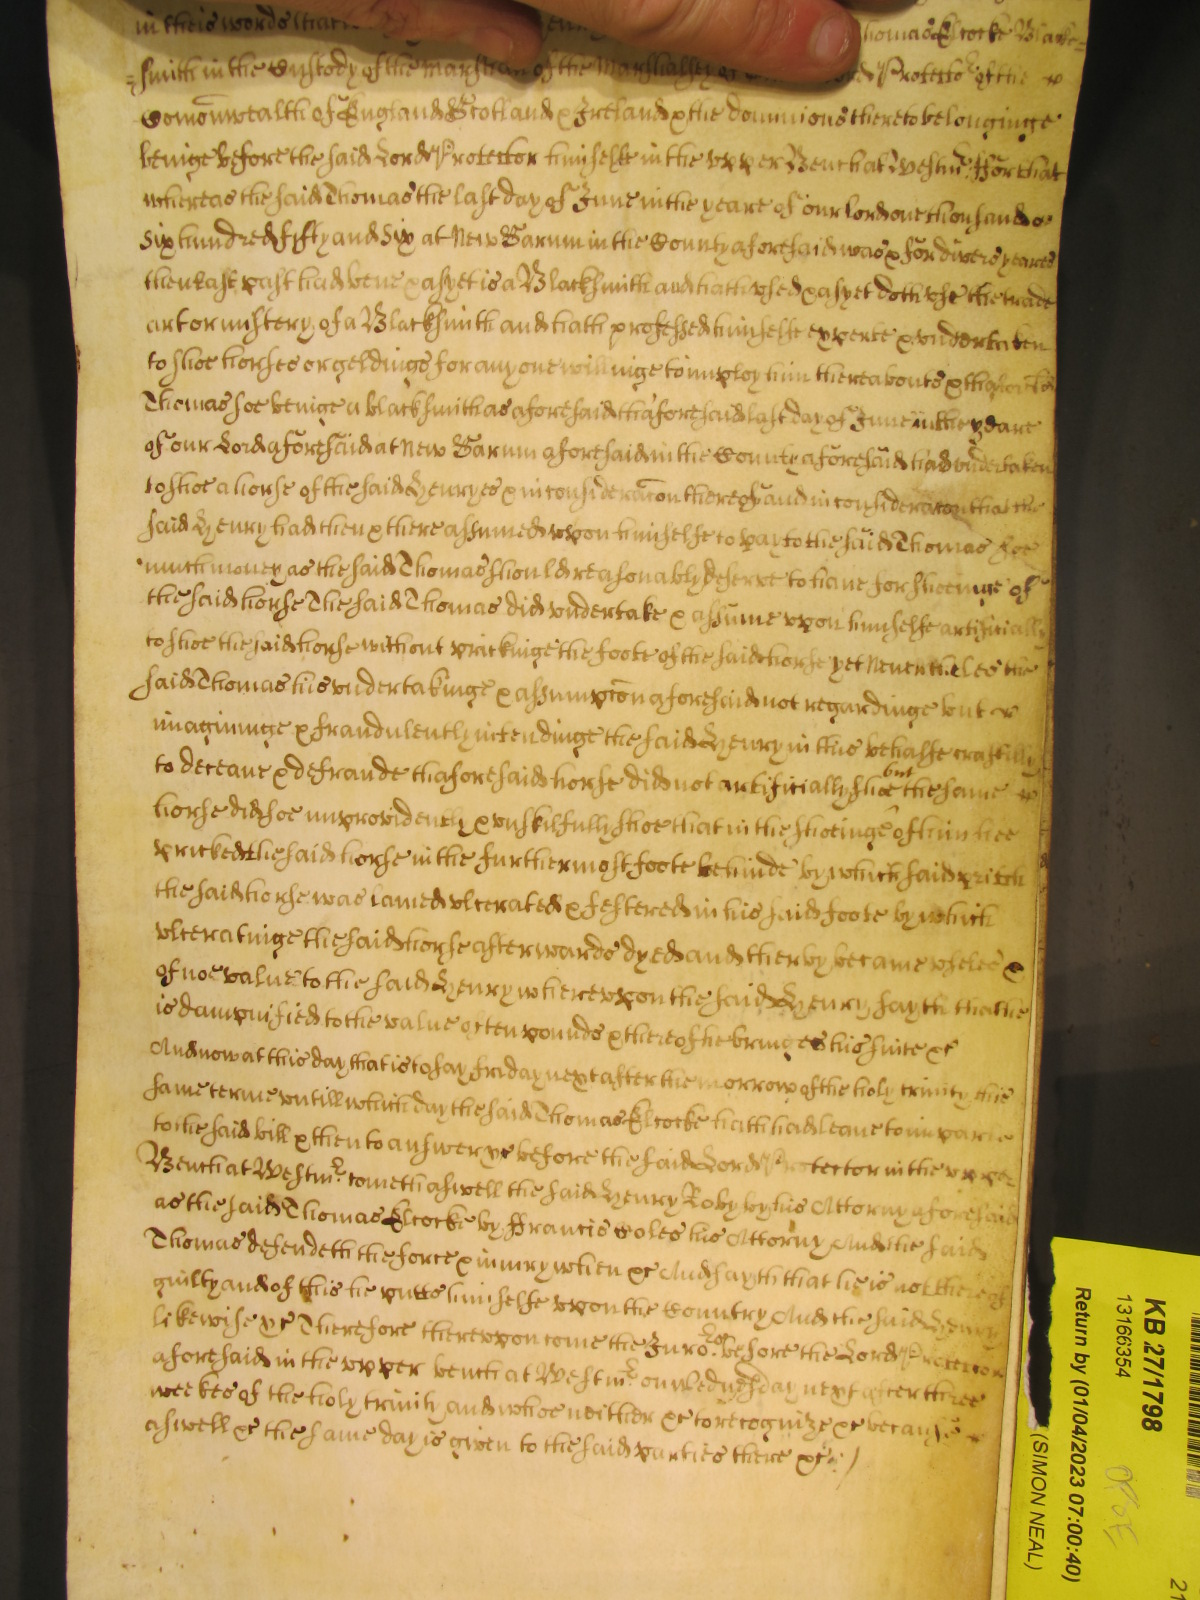 in theis words that Thomas Elcocke Blacke=
=smith in the Custody of the Marshall of the Marshalsey of Lord Protector of the
Comōnwealth of England Scotland & Ireland & the dominions thereto belonginge
beinge before the said Lord Protector himselfe in the upper Bench at Westmr. ffor that
whereas the said Thomas the last day of June in the yeare of our lord one thousand
six hundred fifty and six at New Sarum in the County aforesaid was & for divers yeares
then last past had bene & as yet is a Blacksmith and hath vsed & as yet doth vse the trade
art or mistery of a Blacksmith and hath professed himselfe experte & undertaken
to shoe horses or geldings for any one willinge to imploy him thereabouts &
Thomas soe beinge a blacksmith as aforesaid thaforesaid last day of June in the yeare
of our Lord aforesaid at New Sarum aforesaid in the County aforesaid had vndertaken
to shoe a horse of the said Henryes & in consideracōn thereof and in consideracon that the
said Henry had then & there assumed vpon himselfe to pay to the said Thomas soe
much money as the said Thomas should reasonably deserve to have for shoeinge of
the said horse The said Thomas did vndertake & assume vpon himselfe artificially
to shoe the said horse without prickinge the foote of the said horse yet Neverthelesse the
said Thomas his vndertakinge & assumpcōn aforesaid not regardinge but
imagininge & fraudulently intendinge the said Henry in this behalfe craftilly
to deceave & defraude thaforesaid horse did not artificially shoe but the same
horse did soe improvidently & vnskilfully shoe that in the shoeinge of him hee
pricked the said horse in the furthermost foote behinde by which said prick
the said horse was lamed vlcerated & festered in his said foote by which
vlceratinge the said horse afterwards dyed and therby became vseles &
of noe value to the said Henry wherevpon the said Henry sayth that he
is dampnified to the value of ten pounds & thereof he bringes his suite &c
And now at this day that is to say friday next after the morrow of the holy trinity this
same terme vntill which day the said Thomas Elcocke hath had leave to imparle
to the said bill & then to answer &c before the said Lord Protector in the upper
Bench at Westmr. cometh aswell the said Henry Roby by his Attorny aforesaid
as the said Thomas Elcocke by ffrancis Coles his Attorny And the said
Thomas defendeth the force & iniury when &c And sayth that he is not thereof
guilty and of this he putts himselfe vpon the Country And the said Henry
likewise &c Therefore therevpon come the Juror's before the Lord Protector
aforesaid in the vpper bench at Westmr. on Wednesday next after three
weekes of the holy trinity and whoe neither &c to recognize &c because
aswell &c the same day is given to the said parties there &c. /
KB 27/1798
13166354
Return by (01/04/2023 07:00:40)
(SIMON NEAL)